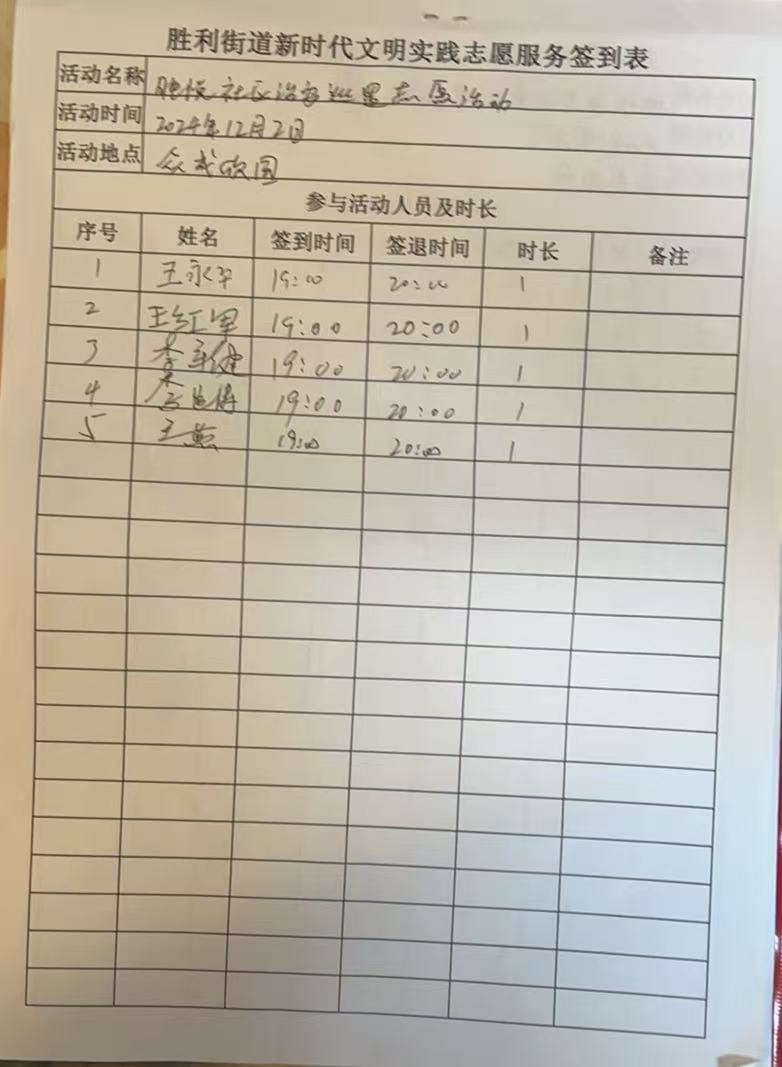 胜利街道新时代文明实践志愿服务签到表
活动名称 社区治安巡逻志愿活动
活动时间 2024年12月2日
活动地点 众成欣园
参与活动人员及时长
序号 姓名 签到时间 签退时间 时长 备注
1 王永平 19:00 20:00 1
2 王红军 19:00 20:00 1
3 李 健 19:00 20:00 1
4 李 19:00 20:00 1
5 王燕 19:00 20:00 1